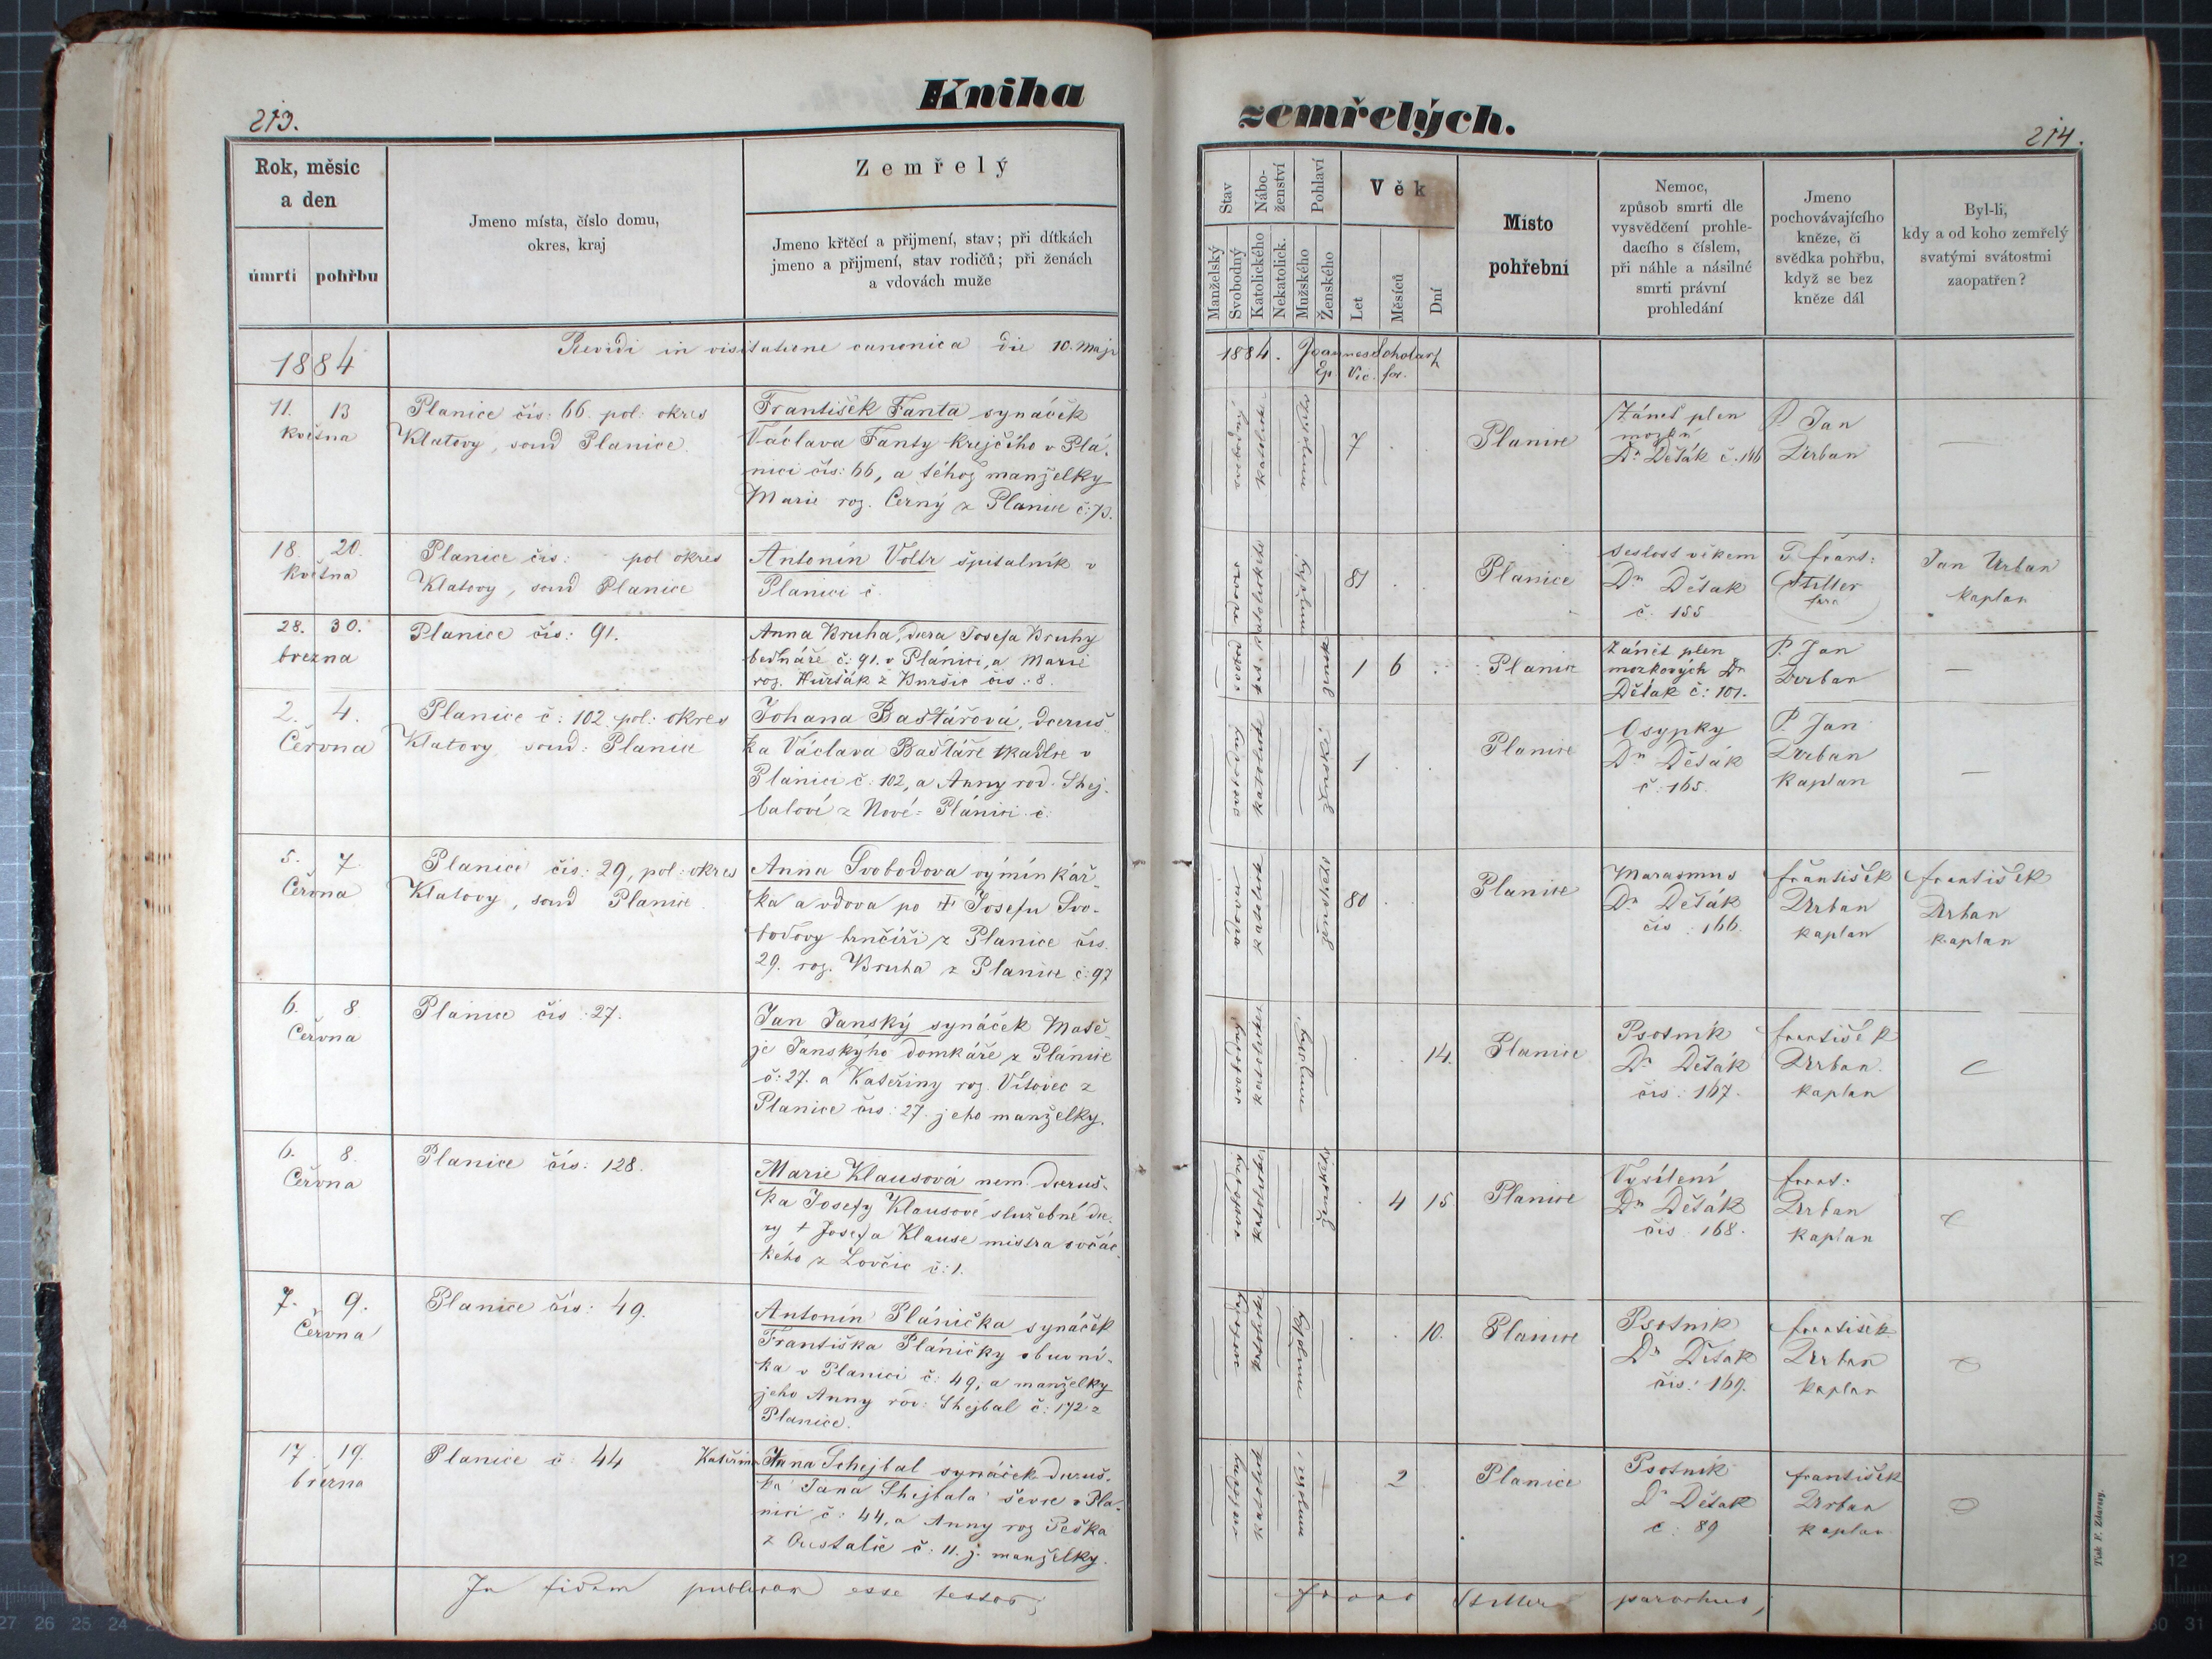 Kniha
213.
Rok, měsíc
a den
úmrtí pohřbu
Jmeno místa, číslo domu,
okres, kraj
Zemřelý
Jmeno křtěcí a přijmení, stav; při dítkách
jmeno a přijmení, stav rodičů; při ženách
a vdovách muže
1884
Revidi in visitatione canonica die 10. Maji
11. 13
května
Planice čís: 66. pol: okres
Klatovy, soud Planice.
František Fanta synáček
Václava Fanty krejčího v Plá-
nici čís: 66, a téhož manželky
Marie roz. Černý z Planice č: 73.
18. 20.
května
Planice čís: pol okres
Klatovy, soud Planice
Antonín Voltr špitalník v
Planici č.
28. 30.
března
Planice čís: 91.
Anna Bruha, dcera Josefa Bruhy
bednáře č: 91. v Plánici, a Marie
roz. čís: 8.
2. 4.
Června
Planice č: 102. pol: okres
Klatovy, soud: Planice
Johana Baštářová, dceruš-
ka Václava Baštáře tkadlce v
Plánici č: 102, a Anny rod. Shej-
balové z Nové-Plánici č:
5. 7.
Června
Planice čís: 29, pol: okres
Klatovy, soud Planice
Anna Svobodova výminkář-
ka a vdova po † Josefu Svo-
bodovy hrnčíři z Planice čís.
29. roz. Bruha z Planice č: 97
6. 8
Června
Planice čís: 27.
Jan Janský synáček Matě-
je Janskýho domkáře z Plánice
č: 27. a Kateřiny roz. Vítovec z
Planice čís: 27. jeho manželky.
6. 8.
Června
Planice čís: 128.
Marie Klausová nem. dceruš-
ka Josefy Klausové služebné dce-
ry † Josefa Klause mistra ovčác-
kého z Lovčic č: 1.
7. 9.
Června
Planice čís: 49.
Antonín Plánička synáček
Františka Pláničky obuvní-
ka v Planici č: 49, a manželky
jeho Anny rod: Shejbal č: 172 z
Planice.
17. 19.
března
Planice č: 44
Kateřina Schejbal synáček dceruš-
ka Jana Shejbala ševce v Pla-
nici č: 44, a Anny roz Peška
z č: 11. j. manželky.
In fidem publicam esse testor;
zemřelých.
214.
Stav
Manželský
Svobodný
Nábo-
ženství
Katolického
Nekatolick.
Pohlaví
Mužského
Ženského
Věk
Let
Měsíců
Dní
Místo
pohřební
Nemoc,
způsob smrti dle
vysvědčení prohle-
dacího s číslem,
při náhle a násilné
smrti právní
prohledání
Jmeno
pochovávajícího
kněze, či
svědka pohřbu,
když se bez
kněze dál
Byl-li,
kdy a od koho zemřelý
svatými svátostmi
zaopatřen?
1884. Joannes
Ep. Vic. for.
svobodný
7
Planice
Zánět plen
mozku
Dr Dešák č. 146
P Jan
Urban
—
vdovec
81
Planice
Sešlost věkem
Dr Dešak
č. 155
P. Frant:
Stiller
Jan Urban
kaplan
svobod
žensk
1 6
Planice
Zánět plen
mozkových Dr
Děšak č: 101.
P. Jan
Urban
—
svobodný
ženský
1
Planice
Osypky
Dr Děšák
č. 165.
P. Jan
Urban
kaplan
—
vdova
ženského
80
Planice
Marasmus
Dr Dešák
čís: 166.
František
Urban
kaplan
František
Urban
kaplan
svobodný
14.
Planice
Psotník
Dr Dešák
čís: 167.
František
Urban.
kaplan
svobodný
ženský
4 15
Planice
Vysílení
Dr Dešák
čís 168.
Frant:
Urban
kaplan
svobodný
10.
Planice
Psotník
Dr Dešak
čís: 169.
František
Urban
kaplan
2
Planice
Psotník
Dr Děšak
č: 89
František
Urban
kaplan
Stiller parochus,
Tisk F. Zdarsay.